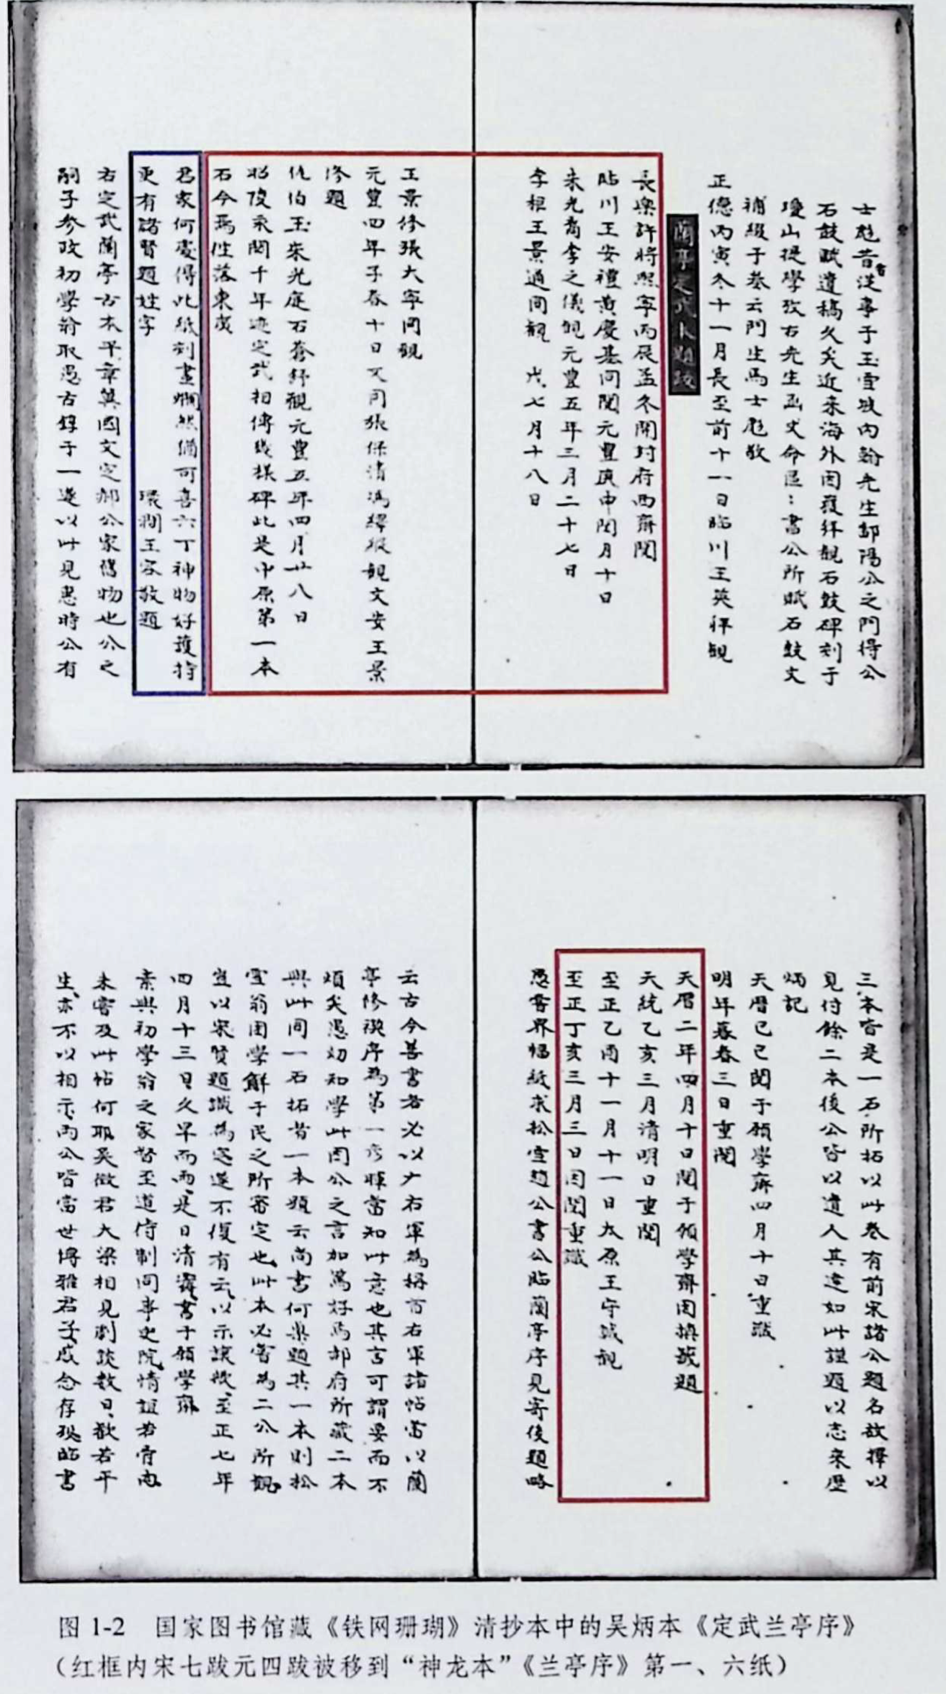 士彪昔從事于玉雪坡內翰先生鄱陽公之門得公
石鼓賦遺稿久矣近來海外因獲拜觀石鼓碑刻于
瓊山提學孜右先生函丈命區﹕書公所賦石鼓文
補綴于卷云門生馬士彪敬
正德丙寅冬十一月長至前十一日臨川王英拜觀
蘭亭定武本題跋
長樂許將熙寧丙辰孟冬開封府西齋閱
臨川王安禮黃慶基同閱元豐庚申閏月十日
朱光裔李之儀觀元豐五年三月二十七日
李祖王景通同觀 戊七月十八日
王景修張太寧同觀
元豐四年子春十日文同張保清馮繹縱觀文安王景
修題
仇伯玉朱光庭石蒼舒觀元豐五年四月廿八日
昭陵采閱千年迹定武相傳幾樣碑此是中原第一本
石今焉往落東度
君家何處得此紙刻畫爛然猶可喜六丁神物好護持
更有諸賢題姓字 環澗王容敬題
右定武蘭亭古本平章冀國文定郝公家舊物也公之
嗣子參政初學翁取愚古錞于一遂以此見惠時公有
三本皆是一石所拓以此卷有前宋諸公題名故擇以
見付餘二本後公皆以遺人其達如此謹題以志來歷
炳記
天曆己巳閱于願學齋四月十日重識
明年暮春三日重閱
天曆二年四月十日閱于願學齋因摸識題
天統乙亥三月清明日重閱
至正乙酉十一月十一日太原王守誠觀
至正丁亥三月三日因閱重識
愚嘗界幅紙求松雪題公書公臨蘭亭序見寄後題略
云古今善書者必以右軍為稱首右軍諸帖當以蘭
亭修禊序為第一彥暉當知此意也其言可謂要而不
煩矣愚幼知學此因公之言加篤好焉郝府所藏二本
與此同一石拓者一本題云尚書何㮚題其一本則松
雪翁困學鮮于氏之所審定也此本必嘗為二公所觀
豈以宋賢題識為完遂不復有云以示謙哉至正七年
四月十三日久旱而雨是日清寗書于願學齋
素與初學翁之家督至道侍制同事史院情誼若骨肉
未嘗及此帖何耶吳徵君大梁相見劇談數日歡若平
生亦不以相示兩公皆當世博雅君子感念存歿臨書
图 1-2 国家图书馆藏《铁网珊瑚》清抄本中的吴炳本《定武兰亭序》
（红框内宋七跋元四跋被移到“神龙本”《兰亭序》第一、六纸）